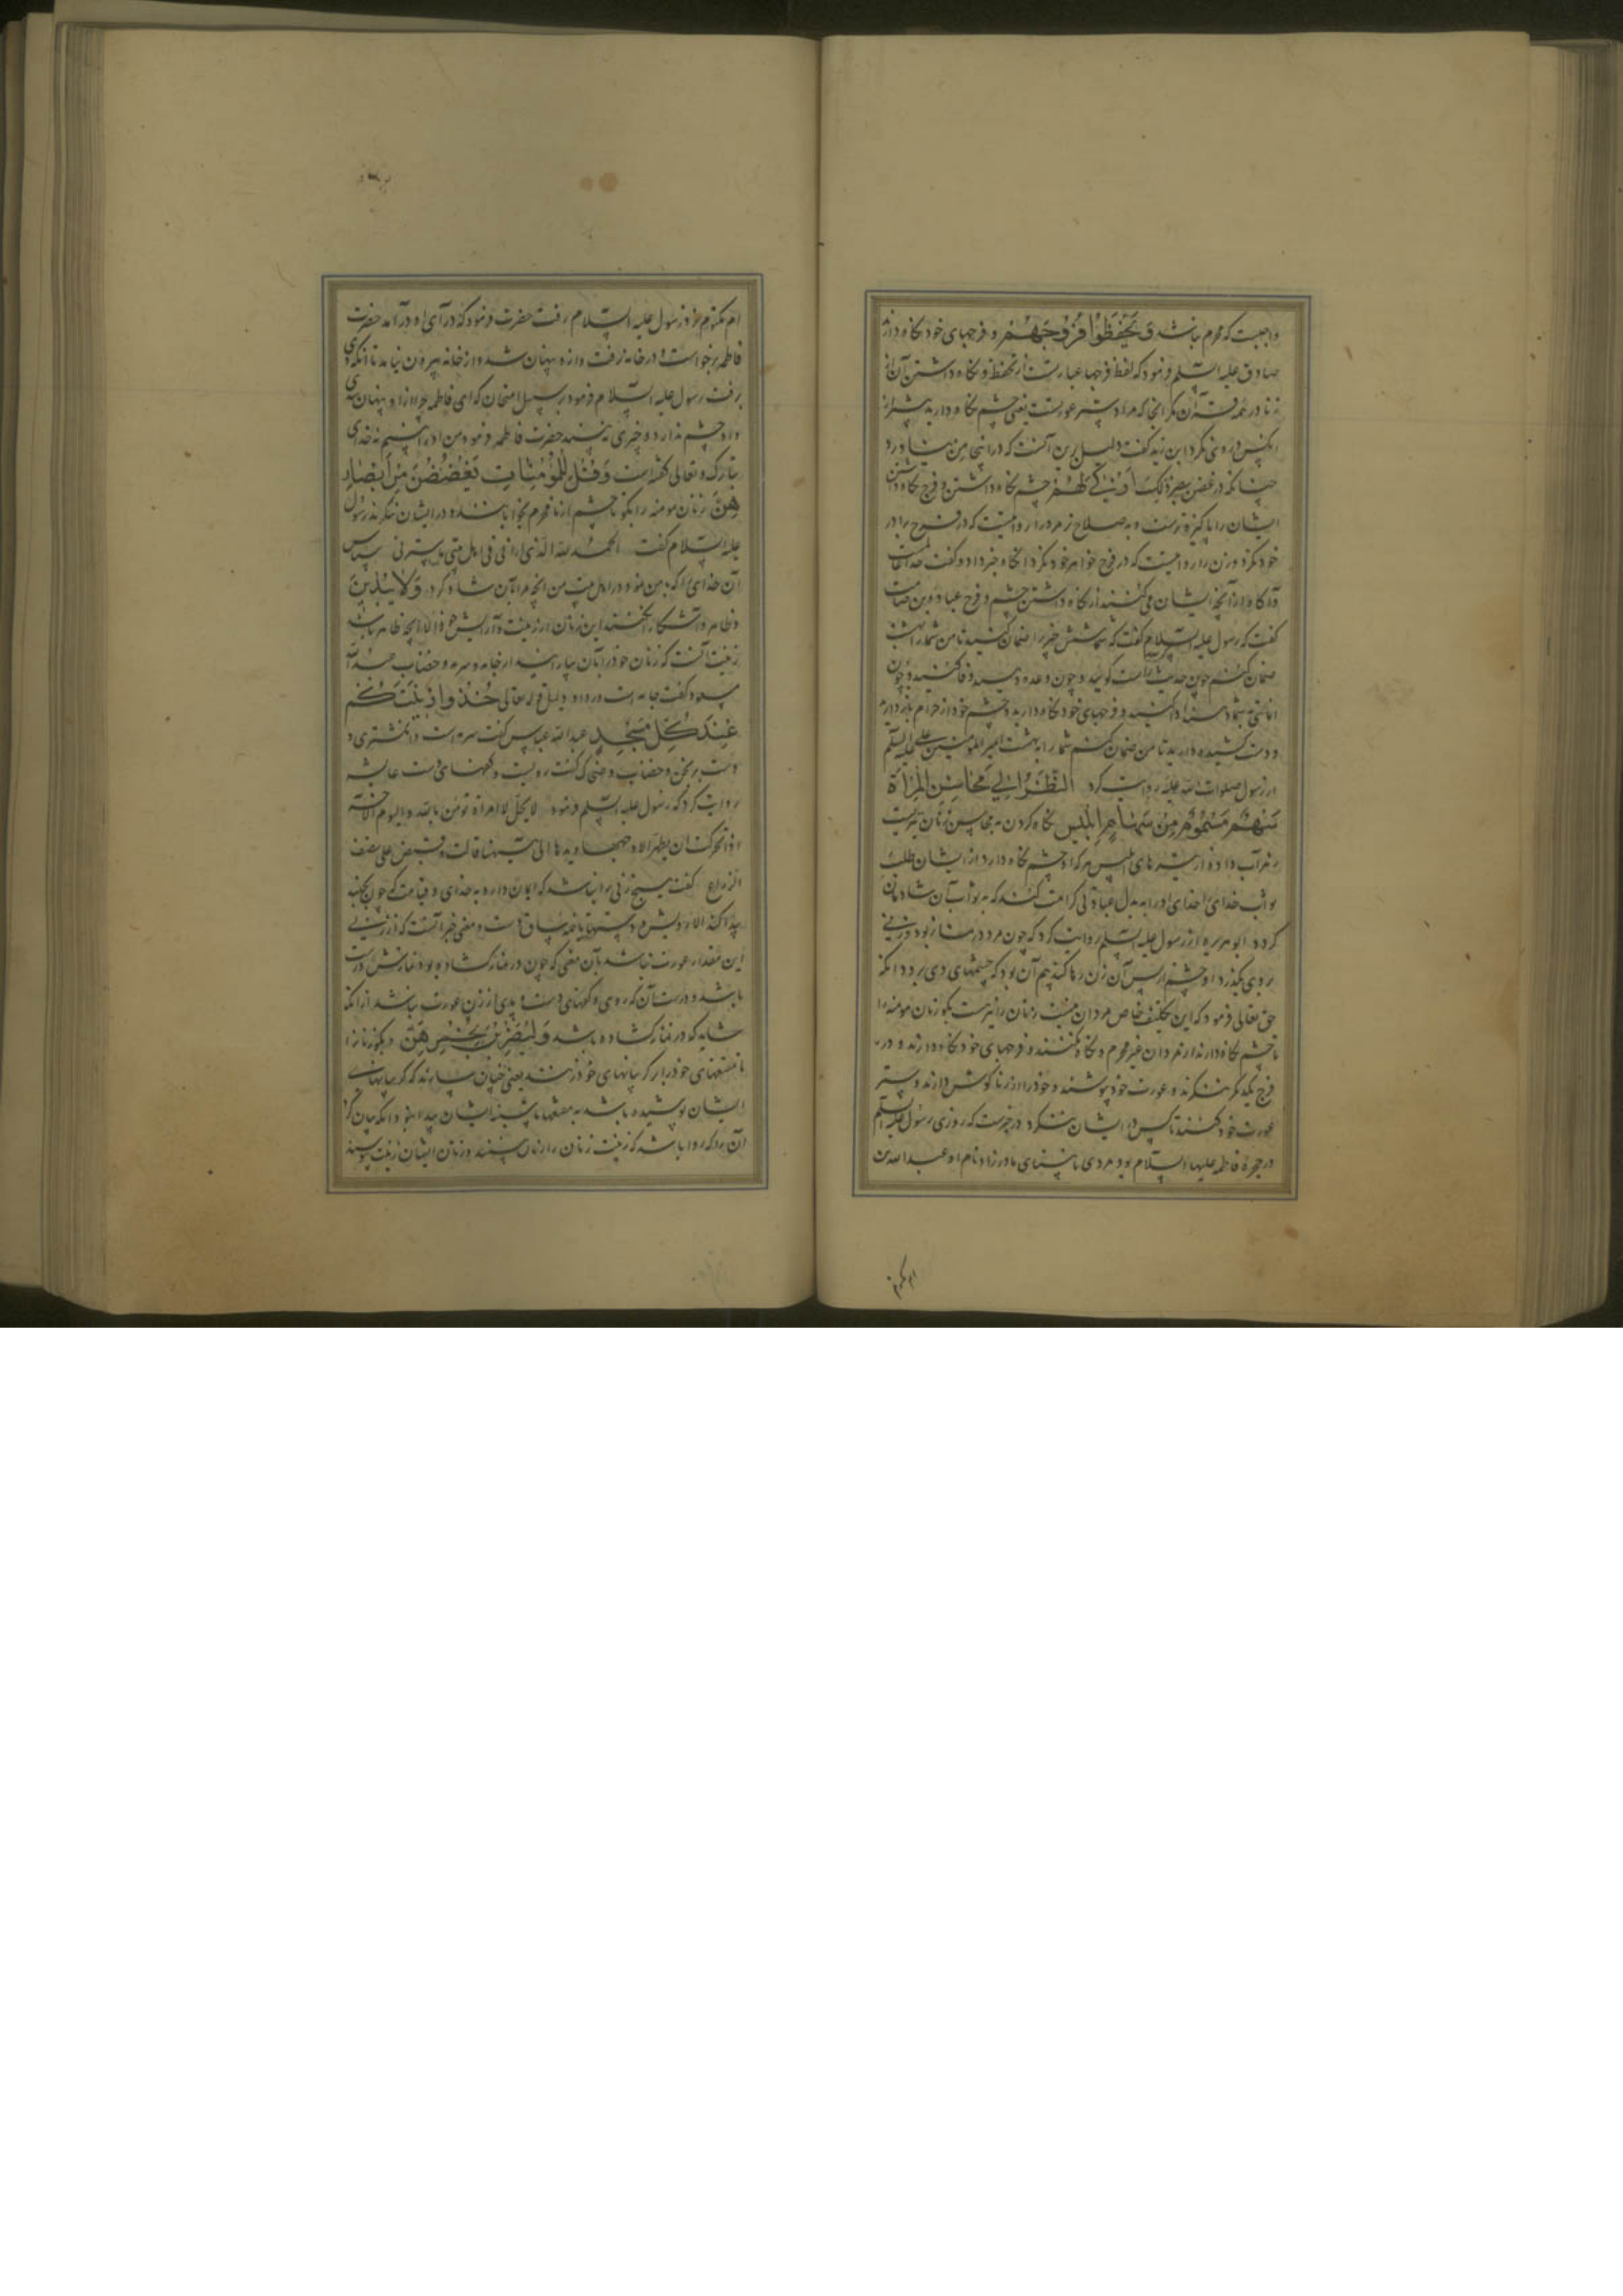 واجبست که محرم نباشد وَیَحْفَظُوا فُرُوجَهُمْ و فرجهای خود نکاه دارند
صادق علیه السلم فرمود که لفظ فرجها عبارتست از تحفظ و نکاه داشتن آن از
زنا در همه قرآن مکر اینجا که مراد ستر عورتست یعنی چشم نکاه دارید بستر از
انکس در وی نکرد ابن زید کفت دلیل برین آنست که در اینجا من نیاورد
چنانکه در غض بصر ذٰلِکَ اَزْکیٰ لَهُمْ چشم نکاه داشتن و فرج نکاه داشتن
ایشان را پاکیزه ترست و بصلاح تر مرد را روا نیست که در فرج برادر
خود نکرد و زن را روا نیست که در فرج خواهر خود نکرد انکاه خبر داد و کفت خدا
آکاه از آنچه ایشان می کنند از نکاه داشتن چشم و فرج عباده بن صامت
کفت که رسول علیه السلام کفت که شما شش چیز را ضمان کنید تا من شما را بهشت
ضمان کنم چون حدیث راست کویید و چون وعده دهید وفا کنید و چون
امانتی بشما دهند ادا کنید و فرجهای خود نکاه دارید و چشم خود از حرام باز دارید
و دست کشیده دارید تا من ضمان کنم شما را بهشت امیر المومنین علی علیه السلم
از رسول صلوات الله علیه روایت کرد النَّظَرُ اِلیٰ مَحَاسِنِ الْمَرْأَةِ
سَهْمٌ مَسْمُومٌ مِنْ سِهَامِ اِبْلِیسَ نکاه کردن به محاسن زنان تیریست
زهر آب داده از تیرهای ابلیس هر که او چشم نکاه دارد از ایشان طلب
ثواب خدای را خدای او را به بدل عبادتی کرامت کند که به ثواب آن شادمان
کردد ابو هریره از رسول علیه السلم روایت کرد که چون مرد در نماز بود و زنی
بر وی بکذرد او چشم از پس آن زن رها کند بیم آن بود که چشمهای وی برود انکه
حق تعالی فرمود که این تکلیف خاص مردان نیست زنان را نیز هست بکو زنان مومنه را
تا چشم نکاه دارند از مردان غیر محرم و نکاه نکنند و فرجهای خود نکاه دارند و در
فرج یکدیکر ننکرند و عورت خود بپوشند و خود را از زنا کوش دارند و ستر
عورت خود کنند تا کس در ایشان ننکرد در خبرست که روزی رسول علیه السلم
در حجره فاطمه علیها السلام بود مردی نابینای مادرزاد نام او عبد الله بن
ام مکتوم
ام مکتوم نزد رسول علیه السلام رفت حضرت فرمود که در آی او در آمد حضرت
فاطمه برخواست و در خانه رفت و ازو پنهان شد و از خانه بیرون نیامد تا آنکه وی
برفت رسول علیه السلام فرمود بر سبیل امتحان که ای فاطمه چرا ازو پنهان شدی
و او چشم ندارد و چیزی نبیند حضرت فاطمه فرمود من او را بینم نه خدای
تبارک و تعالی کفته است وَقُلْ لِلْمُؤْمِنَاتِ یَغْضُضْنَ مِنْ اَبْصَارِ
هِنَّ زنان مومنه را بکو تا چشم از نامحرم بخوابانند و در ایشان ننکرند رسول
علیه السلام کفت الحمد لله الذی ارانی فی اهل بیتی ما یسرنی سپاس
آن خدای را که بمن نمود در اهل بیت من آنچه مرا بآن شاد کرد وَلَا یُبْدِینَ
و ظاهر و آشکارا نکنند این زنان از زینت و آرایش خود الا آنچه ظاهر باشد
زینت آنست که زنان خود را بآن بیارایند از جامه و سرمه و خضاب عبد الله
مسعود کفت جامه است و ردا و دلیل قوله تعالی خُذُوا زِینَتَکُمْ
عِنْدَ کُلِّ مَسْجِدٍ عبد الله عباس کفت سرمه است و انکشتری و
دست برنجن و خضاب و ضحاک کفت رویست و کفهای دست عایشه
روایت کرد که رسول علیه السلم فرمود لا یحل لامراة تومن بالله والیوم الاخر
اذا عرکت ان یظهر الا وجهها ویدها الی هیهنا قالت وقبض علی نصف
الذراع کفت هیچ زنی روا نباشد که ایمان دارد به خدای و قیامت که چون
پیدا کند الا رویش و دستهاش تا نیمه ساق دست و معنی خبر آنست که از زن
این مقدار عورت نباشد بآن معنی که چون در نماز کشاده بود نمازش درست
باشد و درست آن که روی و کفهای دست و پای از زن عورت نباشد از انکه
شاید که در نماز کشاده باشد وَلْیَضْرِبْنَ بِخُمُرِهِنَّ و بکو زنان را
تا مقنعهای خود را بر کریبانهای خود زنند یعنی چنان سازند که کریبانهای
ایشان پوشیده باشد به مقنعها تا سینه ایشان پیدا نبود انکه بیان کرد
آن را که روا باشد که زینت زنان را از آن بینند و زنان ایشان زینت بپوشند